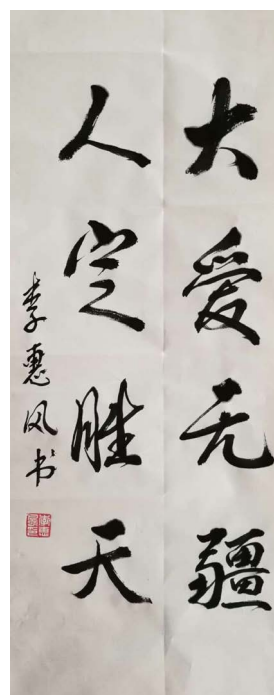 大爱无疆
人定胜天
李惠凤书